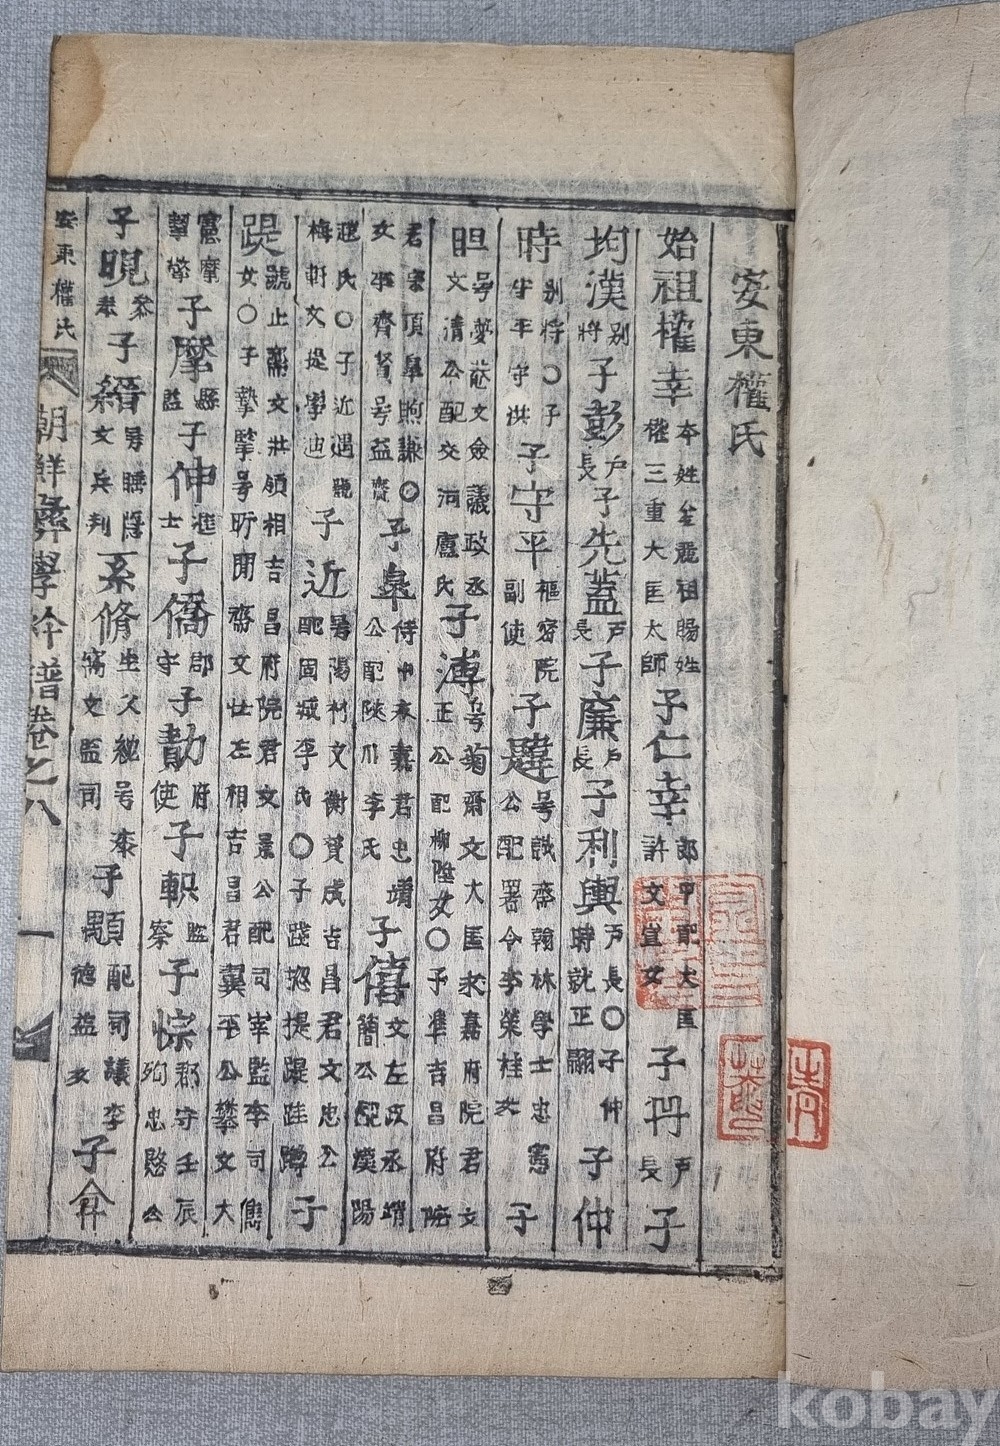 安東權氏
始祖權幸本姓金麗祖賜姓權三重大匡太師子仁幸郎中配大匡許文宣女子冊戶長子
均漢別將子彭戶長子先蓋戶長子廉戶長子利輿戶長〇子仲時就正子仲
時別將〇子守平守洪子守平樞密院副使子韙号識齋翰林學士忠憲公配署令李榮柱女子
号夢菴文僉議政丞文清公配交河盧氏子溥号菊齋文大匡永嘉府院君文正公配柳陞女〇子準吉昌府院
君宗頂皐煦謙〇女李齊賢号益齋子皐侍中永嘉君忠靖公配陜川李氏子僖文左政丞靖簡公配漢陽
趙氏〇子近遇號梅軒文提學迪子近号陽村文衡贊成吉昌君文忠公配固城李氏〇子踐提踶跬蹲子
踶號止齋文壯領相吉昌府院君文景公配司宰監李司儁女〇子摯擥号所閒齋文壯左相吉昌君翼平公攀文大
憲摩子摩縣監子伸進士子僑郡守子勛府使子軹監察子悰郡守壬辰殉忠愍公
子晛參奉子縉号睡隱系文兵判系脩生父紞号泰窩文監司子顒配司議李德益女子弇
安東權氏 朝鮮彝學譜卷之八 一
kobay